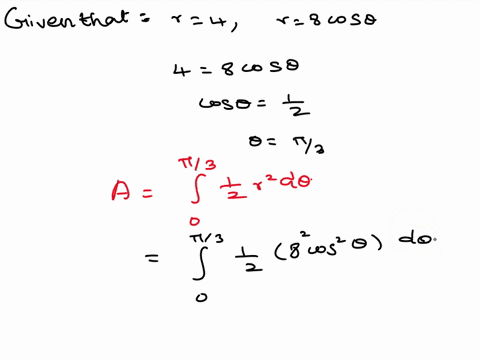 Given that:- r=4, r=8cosθ
4=8cosθ
cosθ=1/2
θ=π/3
A= ∫₀^(π/3) 1/2 r² dθ
= ∫₀^(π/3) 1/2 (8²cos²θ) dθ.